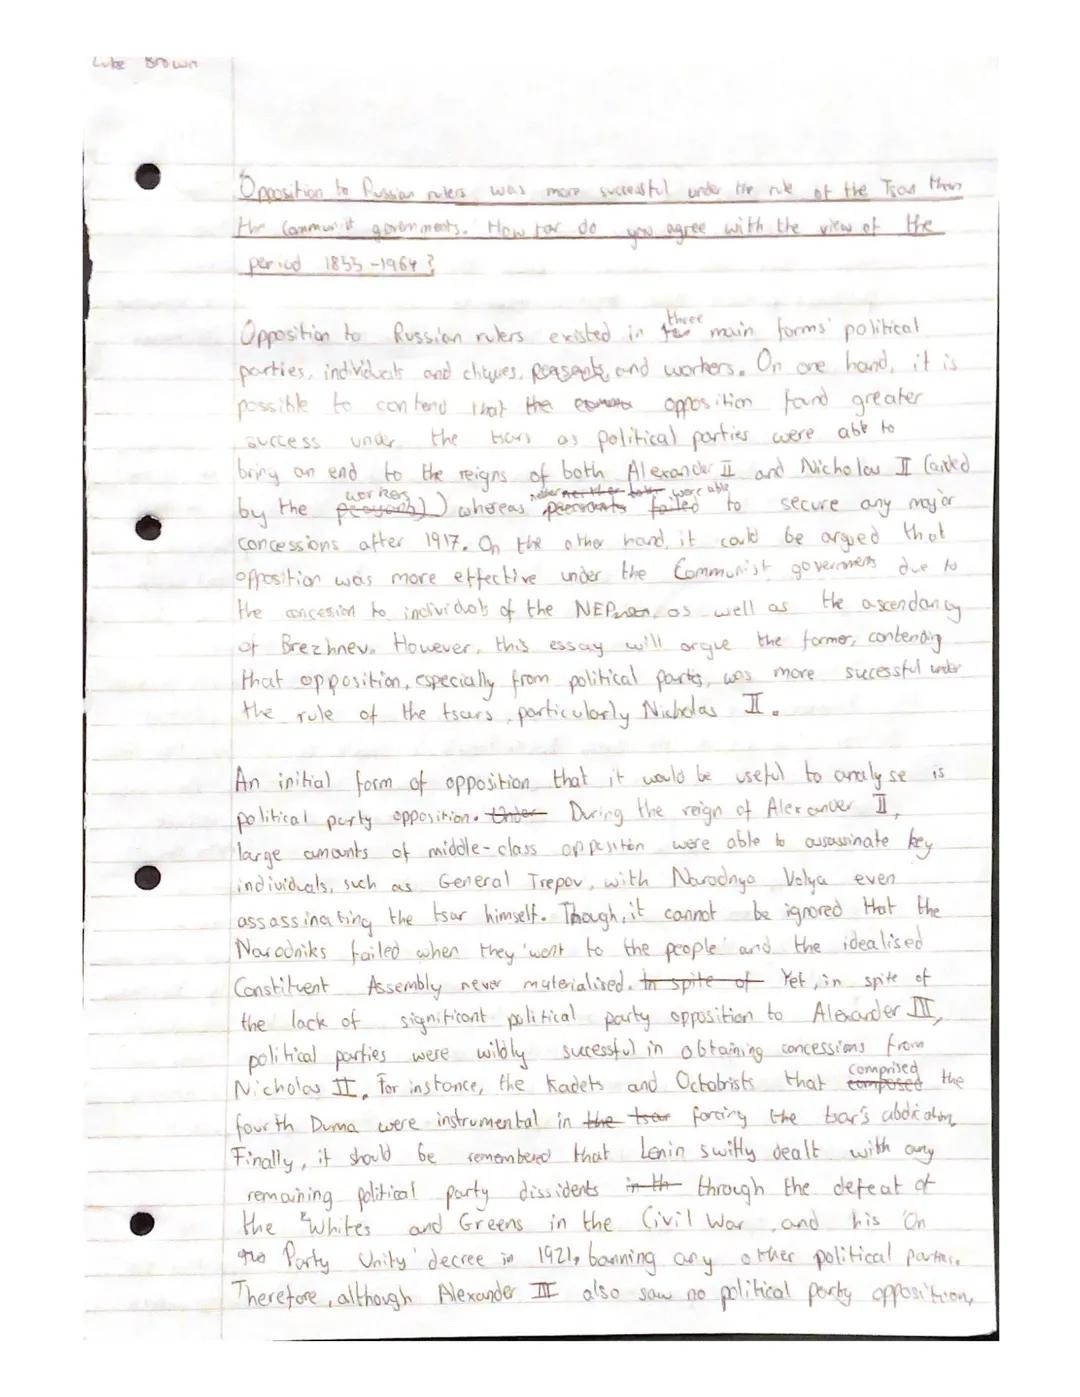 Luke Brown
Opposition to Russian rulers was more successful under the rule of the Tsars than
the Communist governments. How far do you agree with the view of the
period 1855-1964?
Opposition to Russian rulers existed in three main forms: political
parties, individuals and cliques, peasants, and workers. On one hand, it is
possible to contend that the opposition found greater
success under the tsars as political parties were able to
bring an end to the reigns of both Alexander II and Nicholas II (aided
by the workers) whereas neither were able to secure any major
concessions after 1917. On the other hand, it could be argued that
opposition was more effective under the Communist governments due to
the concesion to individuals of the NEP, as well as the ascendancy
of Brezhnev. However, this essay will argue the former, contending
that opposition, especially from political parties, was more sucessful under
the rule of the tsars, particularly Nicholas II.
An initial form of opposition that it would be useful to analyse is
political party opposition. During the reign of Alexander II,
large amounts of middle-class opposition were able to assassinate key
individuals, such as General Trepov, with Narodnya Volya even
assassinating the tsar himself. Though, it cannot be ignored that the
Narodniks failed when they 'went to the people' and the idealised
Constituent Assembly never materialised. Yet, in spite of
the lack of significant political party opposition to Alexander III,
political parties were wildly sucessful in obtaining concessions from
Nicholas II. For instance, the Kadets and Octobrists that comprised the
fourth Duma were instrumental in forcing the tsar's abdication.
Finally, it should be remembered that Lenin swiftly dealt with any
remaining political party dissidents through the defeat of
the Whites and Greens in the Civil War, and his 'On
Party Unity' decree in 1921, banning any other political parties.
Therefore, although Alexander III also saw no political party opposition,